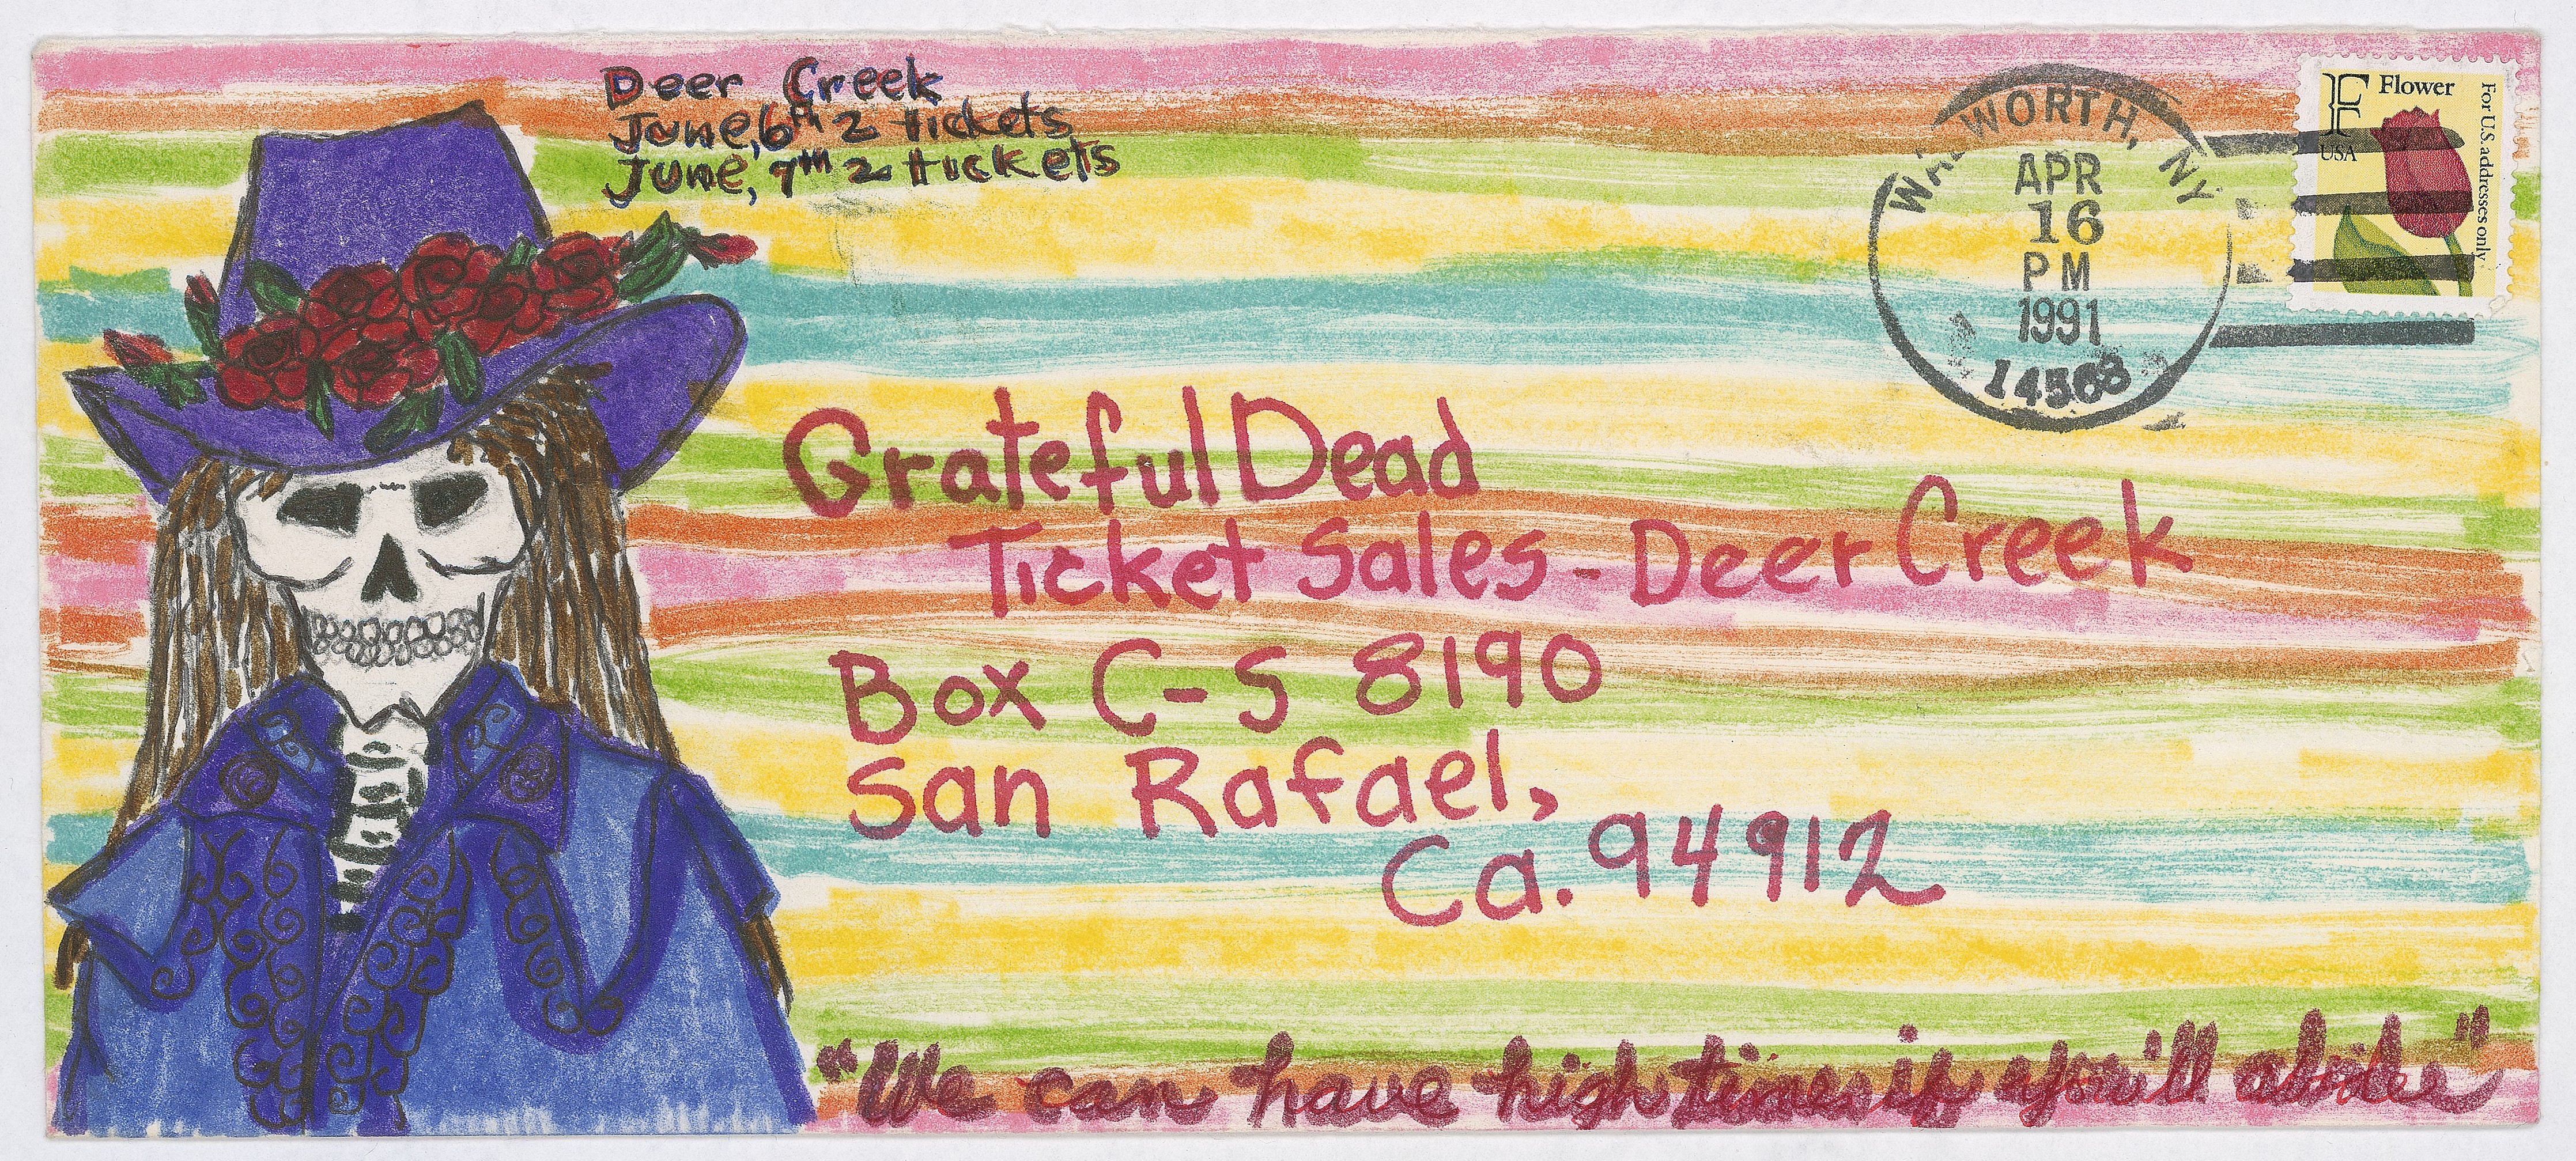 Deer Creek
June, 6th 2 tickets
June, 7th 2 tickets
WALWORTH, NY
APR
16
PM
1991
14568
F Flower
USA
For U.S. addresses only
Grateful Dead
Ticket Sales - Deer Creek
Box C-S 8190
San Rafael,
Ca. 94912
"We can have high times if you'll abide"